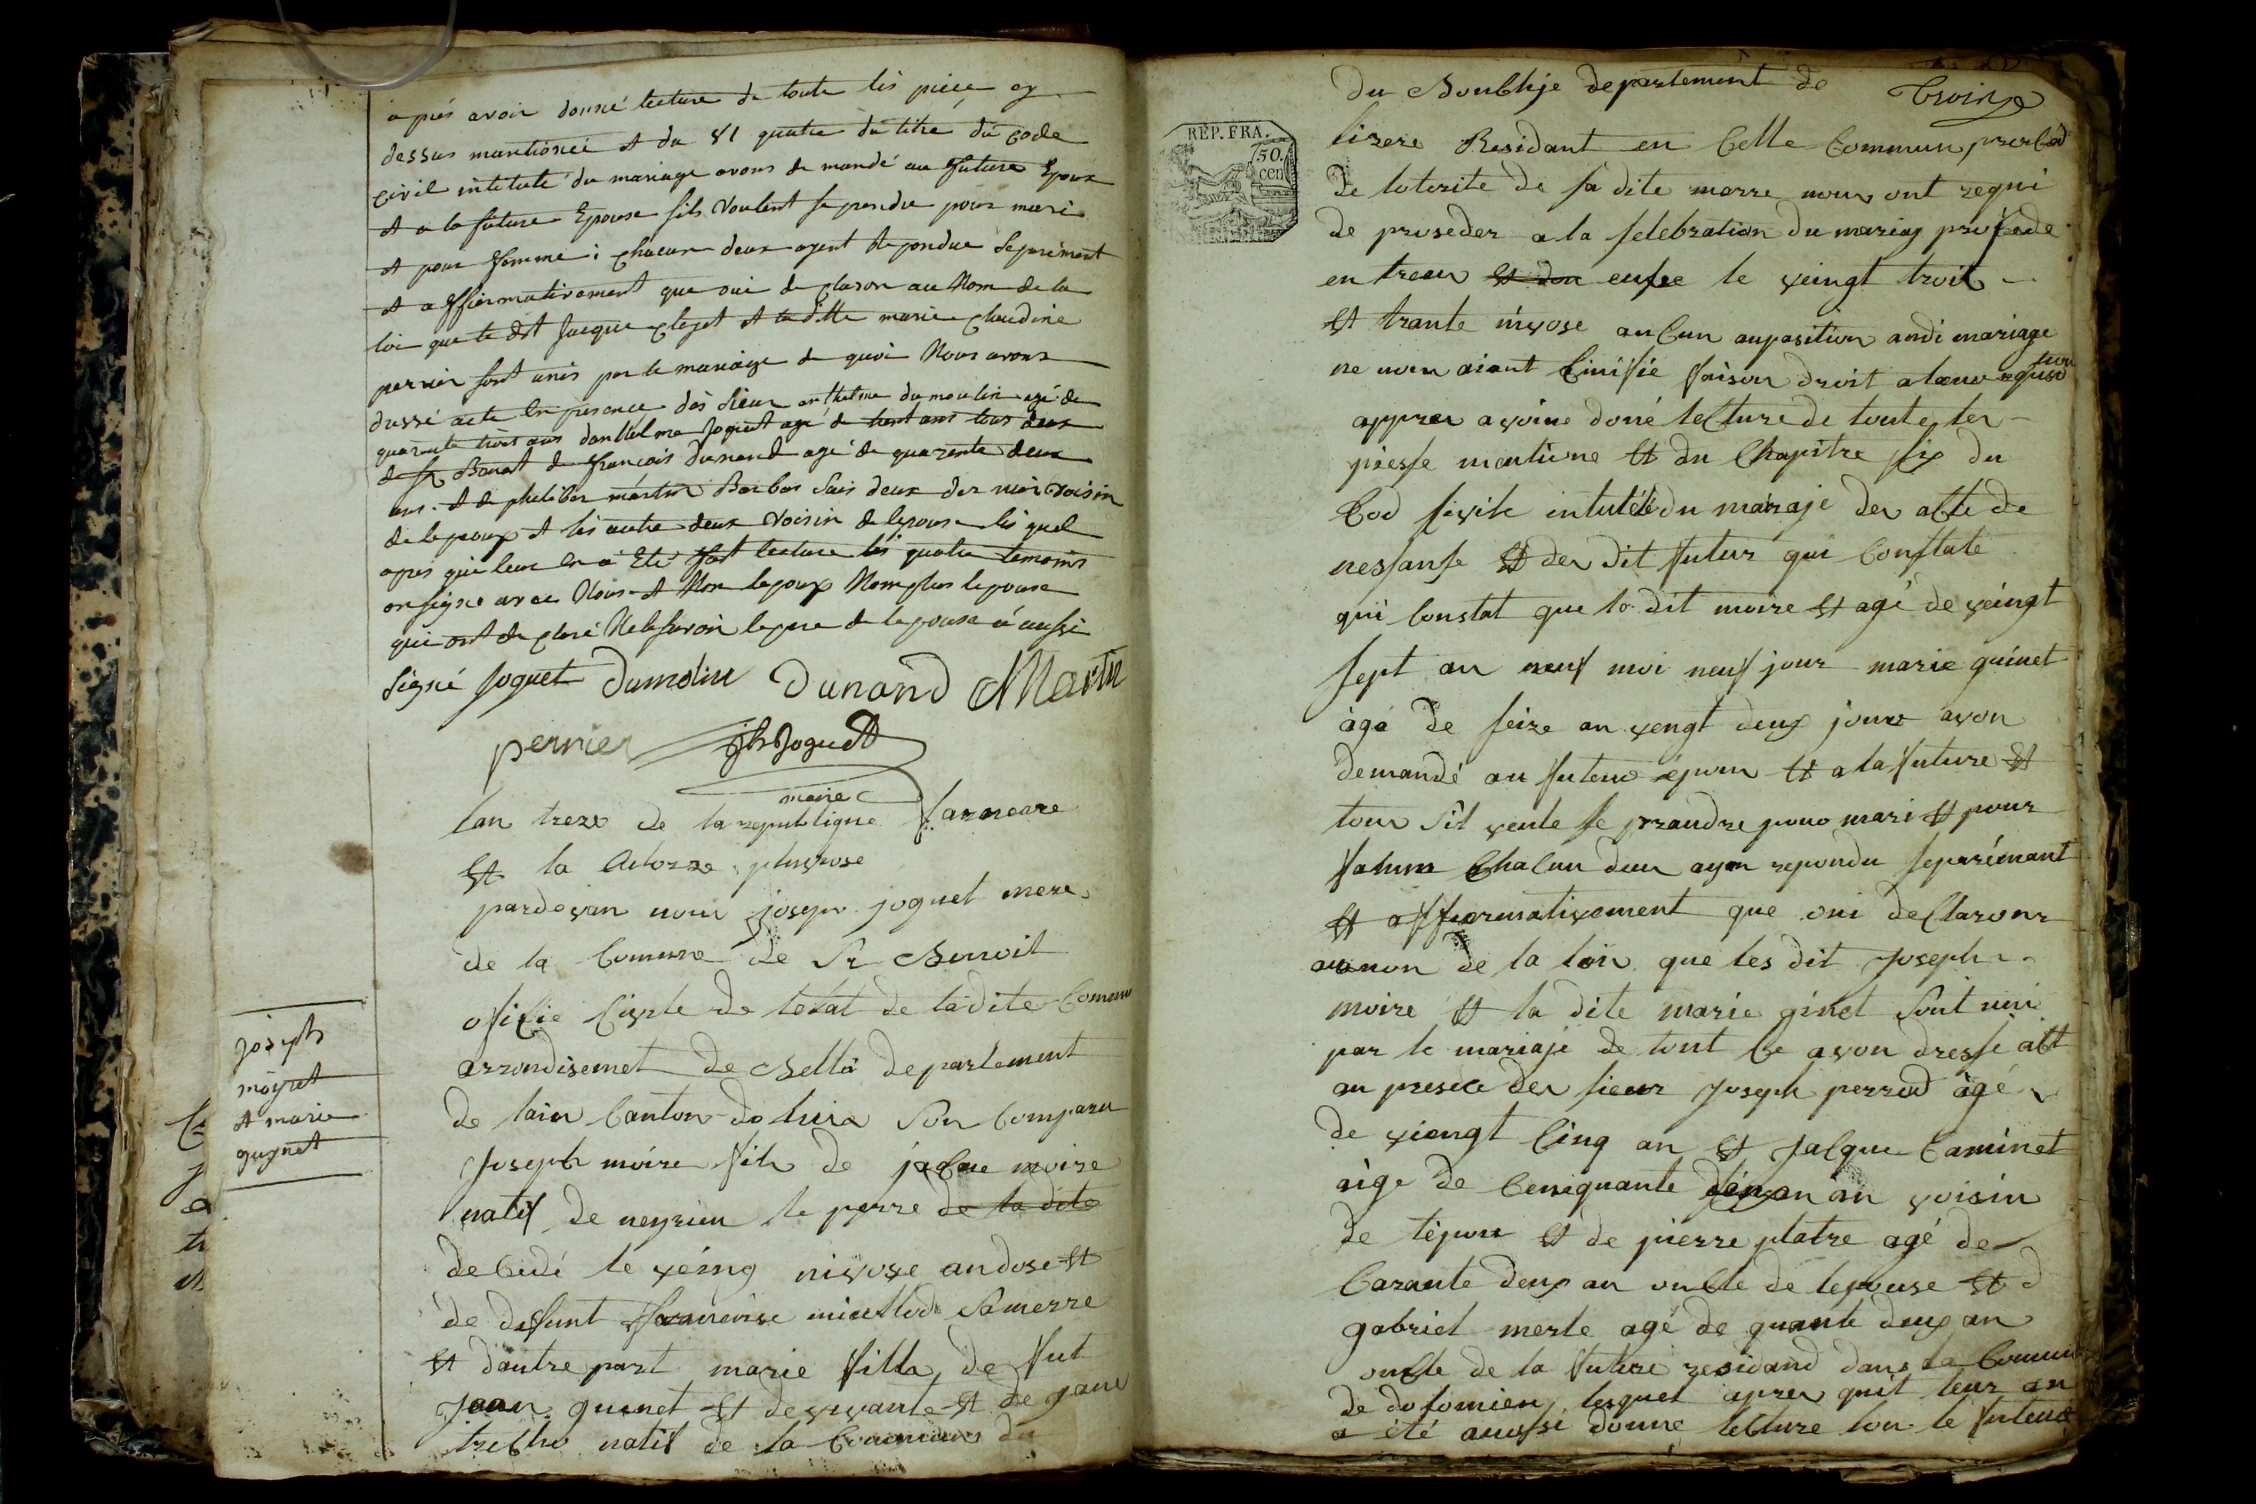 aprés avoir donné lecture de toute lis pièce cy
dessus mantionéé et du §1 quatre du titre du code
civil intitulé du mariage avons de mandé au future Epoux
et a la future Epouse sils veulent se prendre pour mari
et pour femme : chacun deux ayent Repondue Seprément
et affirmativement que oui de claron au Nom de la
loi que le dit Jacque clejet et la ditte marie claudine
perrier sont unis par le mariage de quoi Nous avons
dussé acte en presence dès Sieur anthelme dumoulin agé de
quarante trois ans danthelme Joquet agé de trent ans tous deux
de St Benoit de francois dunand agé de quarente deux
ans et de philiber martin Barbar Sais deux der nier voisin
de lepoux et lis autre deux voisin de lepouse lis quel
apres que leur en a Eté fait lecture lis quatre temoins
on signe avec Nous et Non lepoux Nomplus lepouse
qui ont de claré Ne le savoir le pere de lepouse a aussi
Signé Joguet Dumolin Dunand Martin
perrier Jh Joguet
maire
lan treze de la republique
et la Catorze pluviose
pardevan nous joseph joguet mere
de la Comune de St Benoit
ofisie Civile de letat de ladite Comune
arrondisemet de Bellai departement
de lain Canton de luis Son Comparu
Joseph moire fils de jacque moire
natif de neyrieu le perre de la dite
decédé le véing nivose an dose et
de defunt francoise miallod Samerre
et dautre part marie fille de fut
Jean guinet et de vivante et de
natif de la Commune du
joseph
moyret
et marie
guynet
REP. FRA.
50.
cen
du Bouchje departement de
lizere Residant en Cette Commun
de lotorite de sa dite merre nous ont requi
de proseder a la selebration du mariag
entreeu et don eufee le veingt troit
et trante nivose aucun auposition audi mariage
ne nous aiant Cinifié faison droit a leur requsition
appres avoire doné lecture de toute les
piesse mentione et du Chapitre six du
Cod sivile intutélé du maraje des acte de
nessanse et des dit futur qui Constate
qui Constat que le dit moire et agé de veingt
sept an neuf moi neuf jour marie guinet
àgé de seize an vengt deux jour avon
demandé au futeur épour et a la future et
tour sil veule se prandre pour mari et pour
famme Chacun deu ayon repondu separémant
et affermativement que oui declarons
au non de la loi que les dit Joseph
moire et la dite marie ginet sont uni
par le mariaje de tout ce avon dresse act
an presece des sieur Joseph perrod àgé
de viengt Cinq an et Jacque Caminet
àige de Cenquante an voisin
de lépoux et de pierre platre agé de
Carante deux an oncle de lepouse et d
gabriel merle agé de quante deux an
oncle de la future residand dans la Commune
de dolomieu lesquel apres quil leur an
a été aussi donne lecture lon le futeur